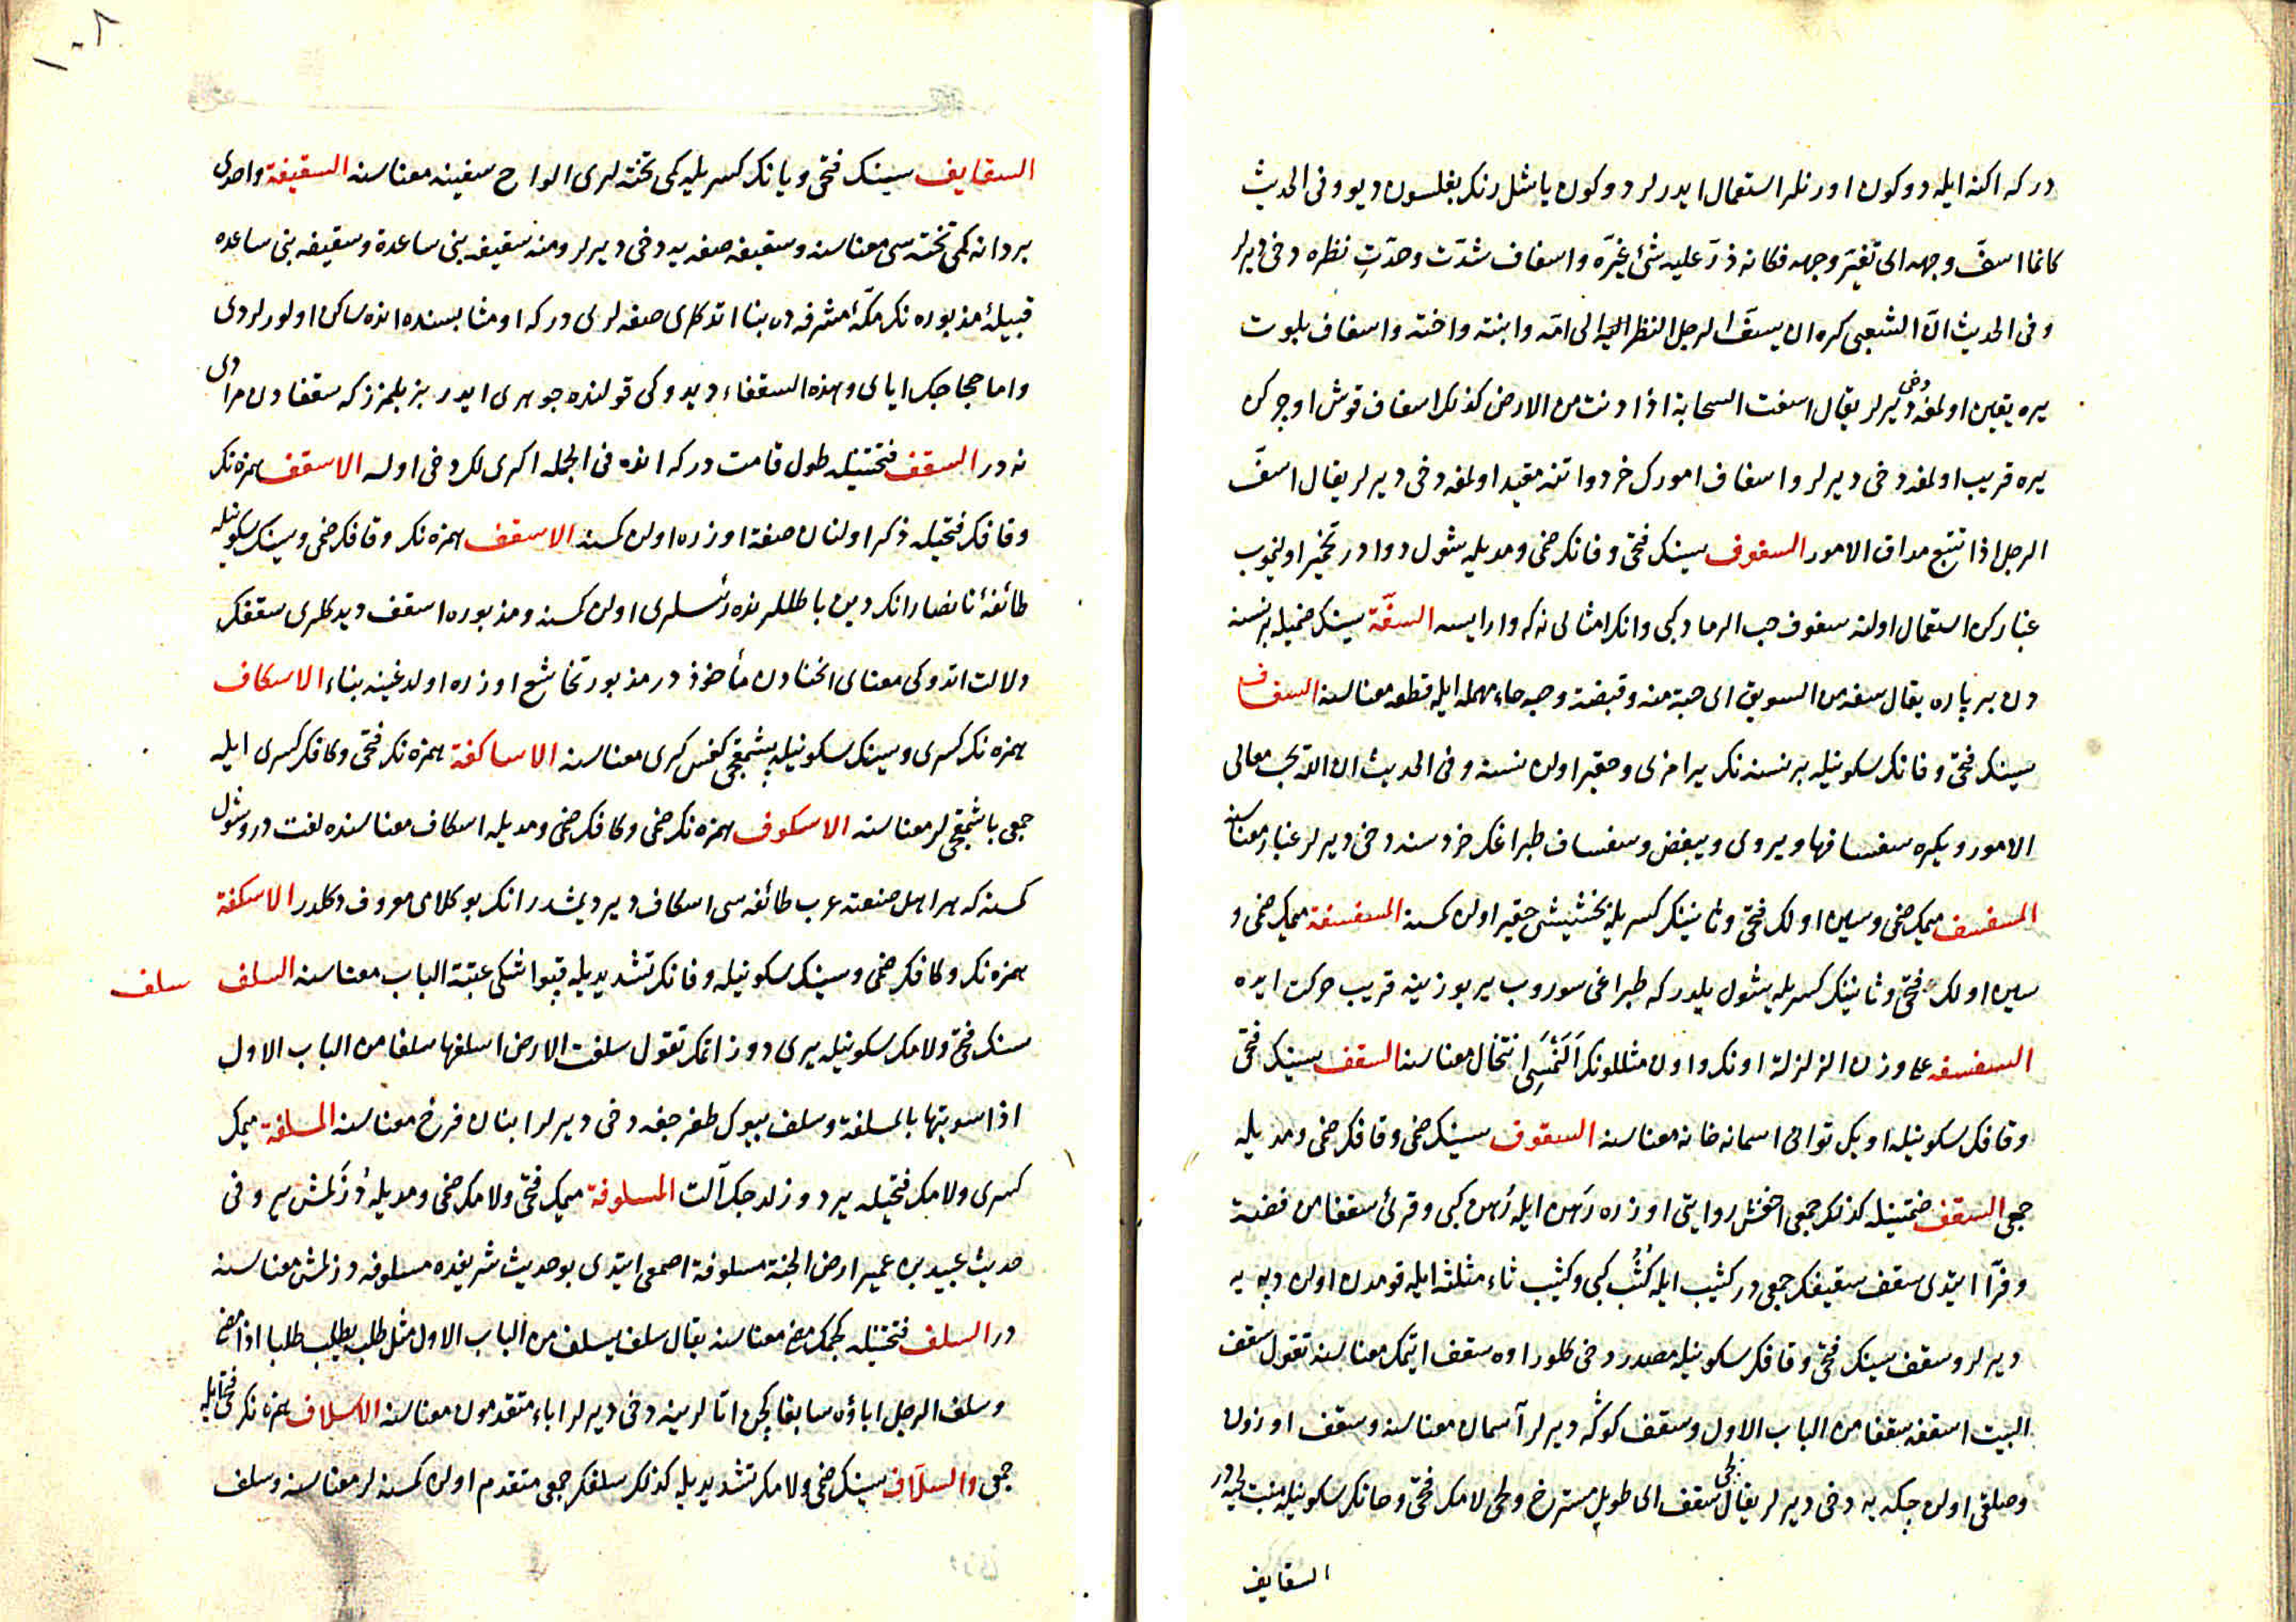 در كه اكنه ايله دوكون اورنلر استعمال ايدرلر دوكون ياشل رنكر بغلسون ديو وفى الحديث
كانما اسفّ وجهه اى تغيّر وجهه فكانه ذرّ عليه شئ غيّره واسفاف شدّت وحدّتِ نظره دخى ديرلر
وفى الحديث انّ الشعبى كره ان يسفّ الرجل النظر اليه الى امّه وابنته واخته واسفاف بلوت
يره يقين اولمغه دخى ديرلر يقال اسفت السحابة اذا دنت من الارض كذلك اسفاف قوش اوچركن
يره قريب اولمغه دخى ديرلر واسفاف امورك خرد واتنه مقيد اولمغه دخى ديرلر يقال اسفّ
الرجل اذا تتبع مداق الامور السفوف سينك فتحى وفانك ضمى ومديله شول دوادر تخمير اولنيوب
غباركن استعمال اولنه سفوف حب الرماد كبى وانك امثالى نه كه وار ايسه السفّة سينك ضميله بر نسنه
دن بر پاره يقال سفه من السويق اى حبة منه وقبضة وحبه حاء مهمله ايله قطعه معناسنه السفساف
سينك فتحى وفانك سكونيله بر نسنه نك يرامزى وحقير اولن نسنه وفى الحديث ان الله يحب معالى
الامور ويكره سفسافها ويروى ويبغض وسفساف طبراغك خردسنه دخى ديرلر غبار معناسنه
المسفسف ميمك ضمى وسين اولك فتحى وثانينك كسريله بخششى حقير اولن كمسنه المسفسفة ميمك ضمى و
سين اولك فتحى وثانينك كسريله شول يلدر كه طبراغى سوروب ير يوزينه قريب حركت ايده
السفسفه على وزن الزلزلة اونك واون مثللونك اَلَنْمَسِى انتخال معناسنه السقف سينك فتحى
وقافك سكونيله اويك توانى اسمانه خانه معناسنه السقوف سينك ضمى وقافك ضمى ومديله
جمعى السقف ضمتينله كذلك جمعى اخفش روايتى اوزره رَهن ايله رُهن كبى وقرئ سقفا من فضة
وفرّا ايتدى سقف سقيفك جمعى در كثيب ايله كُثُب كبى وكثيب ثاء مثلثه ايله قومدن اولن دپه يه
ديرلر وسقف سينك فتحى وقافك سكونيله مصدر دخى كلور اوه سقف ايتمك معناسنه تقول سقف
البيت اسقفه سقفا من الباب الاول وسقف كوكه ديرلر آسمان معناسنه وسقف اوزون
وصلقى اولن چكه يه دخى ديرلر يقال لحى سقف اى طويل مسترخ ولحى لامك فتحى وحانك سكونيله منبت لحيه در
السقايف
١٠٨
السقايف سينك فتحى ويانك كسريله كمى تخته لرى الواح سفينه معناسنه السقيفة واحدى
بر دانه كمى تخته سى معناسنه وسقيفه صفه يه دخى ديرلر ومنه سقيفه بنى ساعدة وسقيفه بنى ساعده
قبيلۀ مذبوره نك مكّۀ مشرفه ده بنا اتدكلرى صفه لرى در كه اومثابسنده انده ساكن اولورلردى
واما حجاجك اياى وهذه السقفاء ديدوكى قولنده جوهرى ايدر بز بلمزز كه سقفادن مرادى
نه در السقف فتحتينله طول قامت در كه انده فى الجمله اكريلك دخى اوله الاسقف همزه نك
وقافك فتحيله ذكر اولنان صفة اوزره اولن كمسنه الاسقف همزه نك وقافك ضمى وسينك سكونيله
طائفۀ نانصارانك دين باطللرنده رئسلرى اولن كمسنه ومذبوره اسقف ديدكلرى سقفك
دلالت اتدوكى معناى انحنادن مأخوذ در مذبور تخاشع اوزره اولدغينه بناء الاسكاف
همزه نك كسرى وسينك سكونيله پشمقجى كفش كرى معناسنه الاساكفة همزه نك فتحى وكافك كسرى ايله
جمعى باشمقجيلر معناسنه الاسكوف همزه نك ضمى وكافك ضمى ومديله اسكاف معناسنده لغت در وشول
كمسنه كه هر اهل صنعته عرب طائفه سى اسكاف ير ديمشدر انك بو كلامى معروف دكلدر الاسكفة
همزه نك وكافك ضمى وسينك سكونيله وفانك تشديديله قپو اشكى عتبة الباب معناسنه السلف سلف
سنك فتحى ولامك سكونيله يرى دوزاتمك تقول سلفت الارض اسلفها سلفا من الباب الاول
اذا سويتها بالمسلفة وسلف بيوك طغرجغه دخى ديرلر ابنان فرخ معناسنه المسلفة ميمك
كسرى ولامك فتحيله ير دوزلدجك آلت المسلوفة ميمك فتحى ولامك ضمى ومديله دُوزلمش ير وفى
حديث عبيد بن عمير ارض الجنة مسلوفة اصمعى ايتدى بو حديث شريفده مسلوفه دوزلمش معناسنه
در السلف فتحتينله كچمك مضى معناسنه يقال سلف يسلف من الباب الاول مثل طلب يطلب طلبا اذا مضى
وسلف الرجل اباؤه سابقا كچن اتالرينه دخى ديرلر اباء متقدمون معناسنه الاسلاف همزه نك فتحى ايله
جمعى والسلّاف سينك ضمى ولامك تشديديله كذلك سلفك جمعى متقدم اولن كمسنه لر معناسنه وسلف